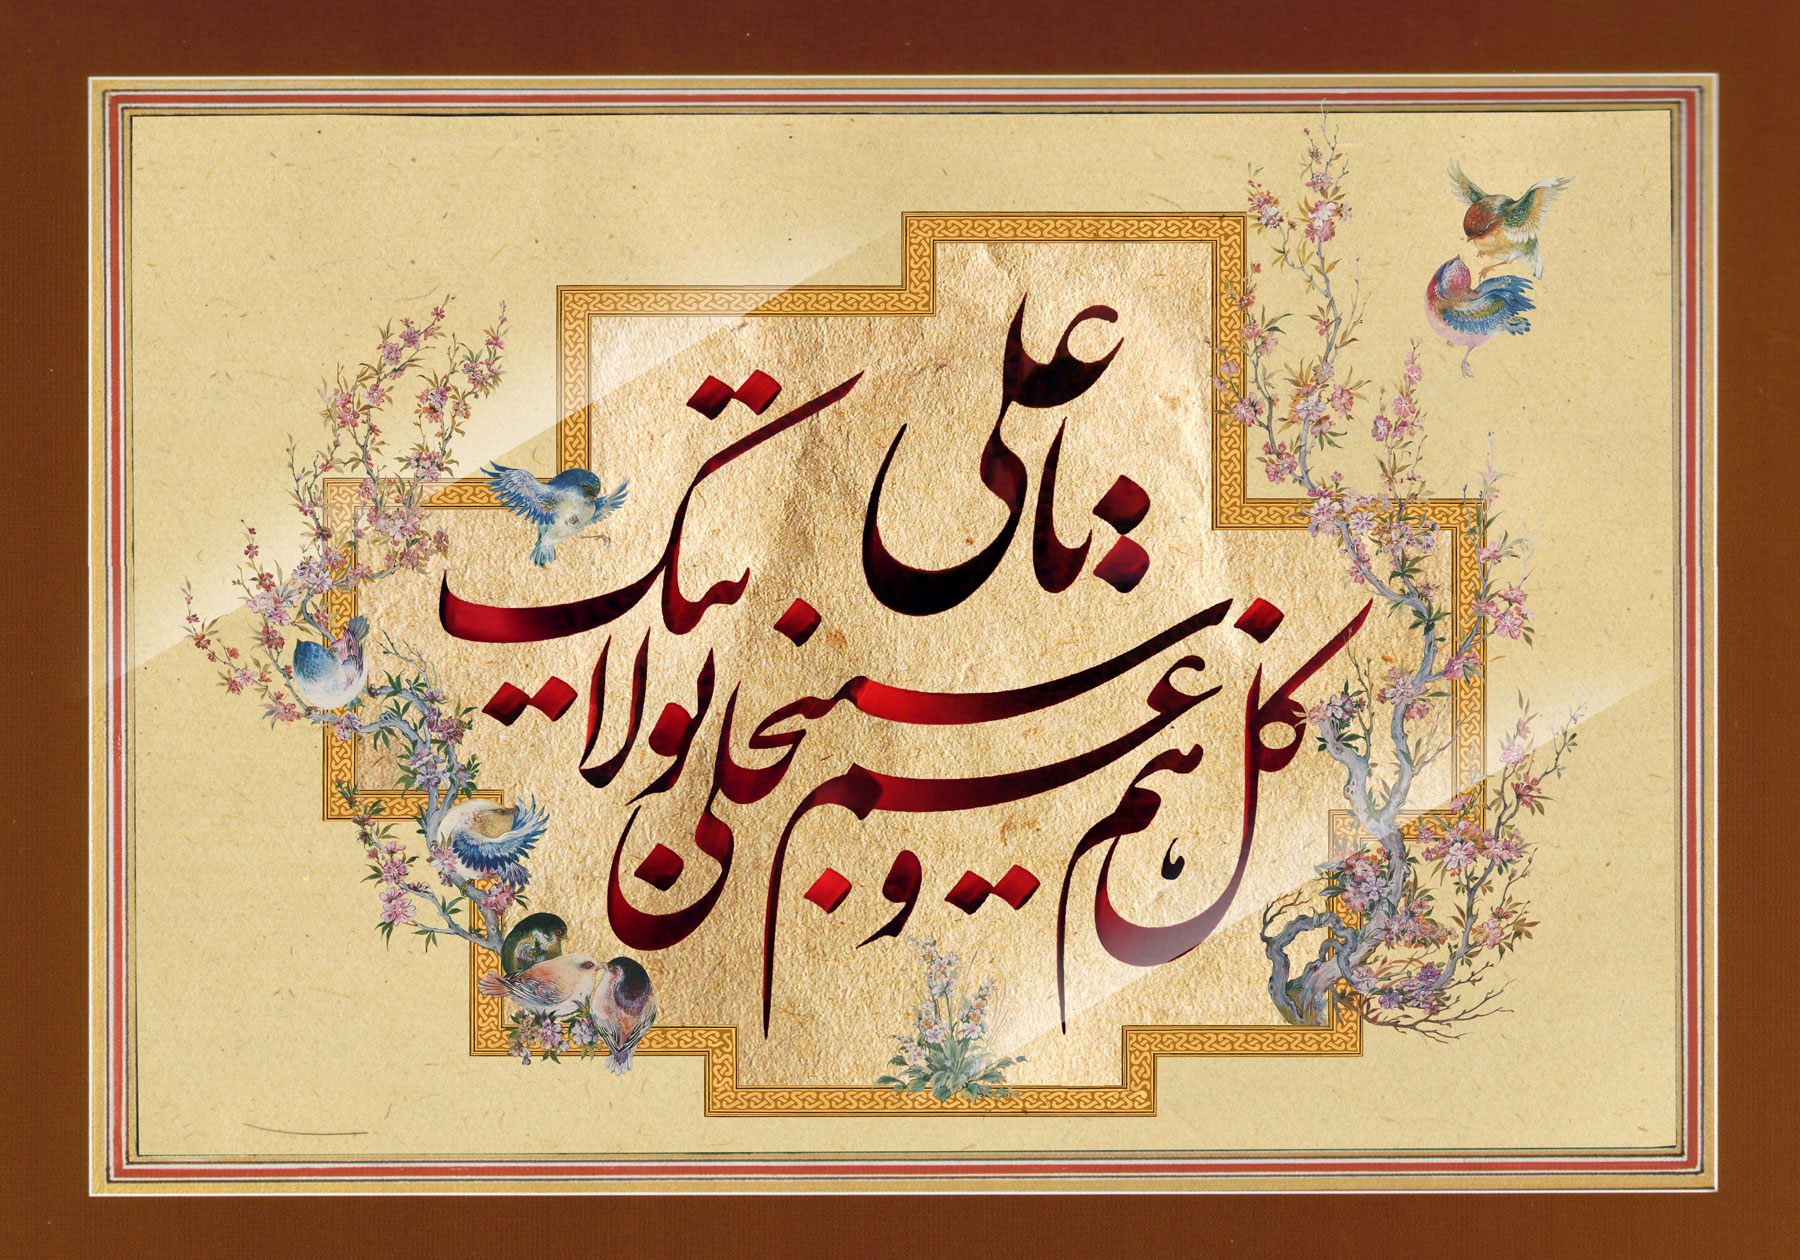 کل هم و غم سینجلی بولایتک
یا علی